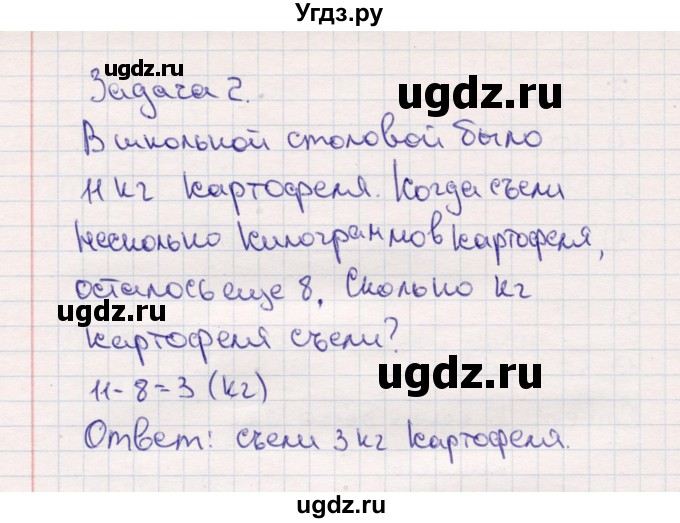 Угдз.ру
ugdz.ru
Задача 2.
ugdz.ru
В школьной столовой было
11 кг картофеля. Когда съели
несколько килограммов картофеля,
осталось еще 8. Сколько кг
ugdz.ru
картофеля съели?
ugdz.ru
11-8=3 (кг)
Ответ: съели 3 кг картофеля.
ugdz.ru